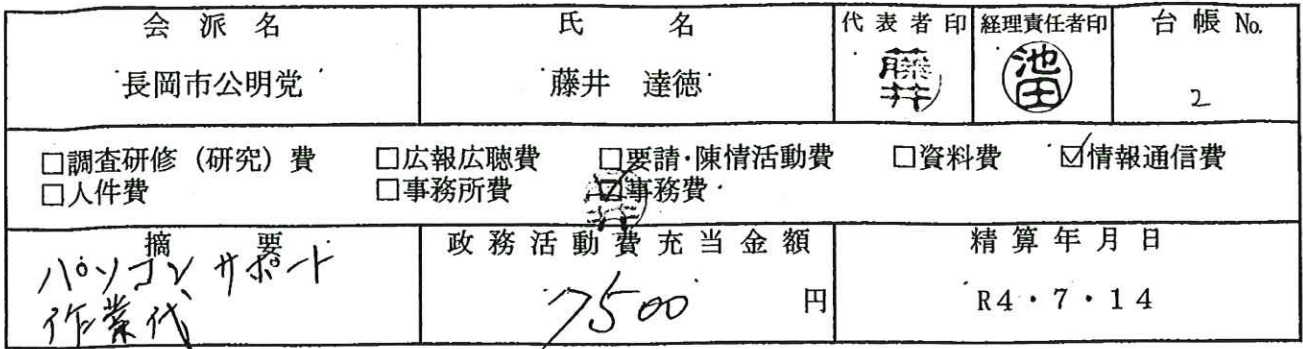 会派名 氏名 代表者印 経理責任者印 台帳No.
長岡市公明党 藤井 達徳 藤井 池田 2
□調査研修（研究）費 □広報広聴費 □要請・陳情活動費 □資料費 ☑情報通信費
□人件費 □事務所費 ☑事務費
摘要 政務活動費充当金額 精算年月日
パソコンサポート
作業代 7500 円 R4・7・14